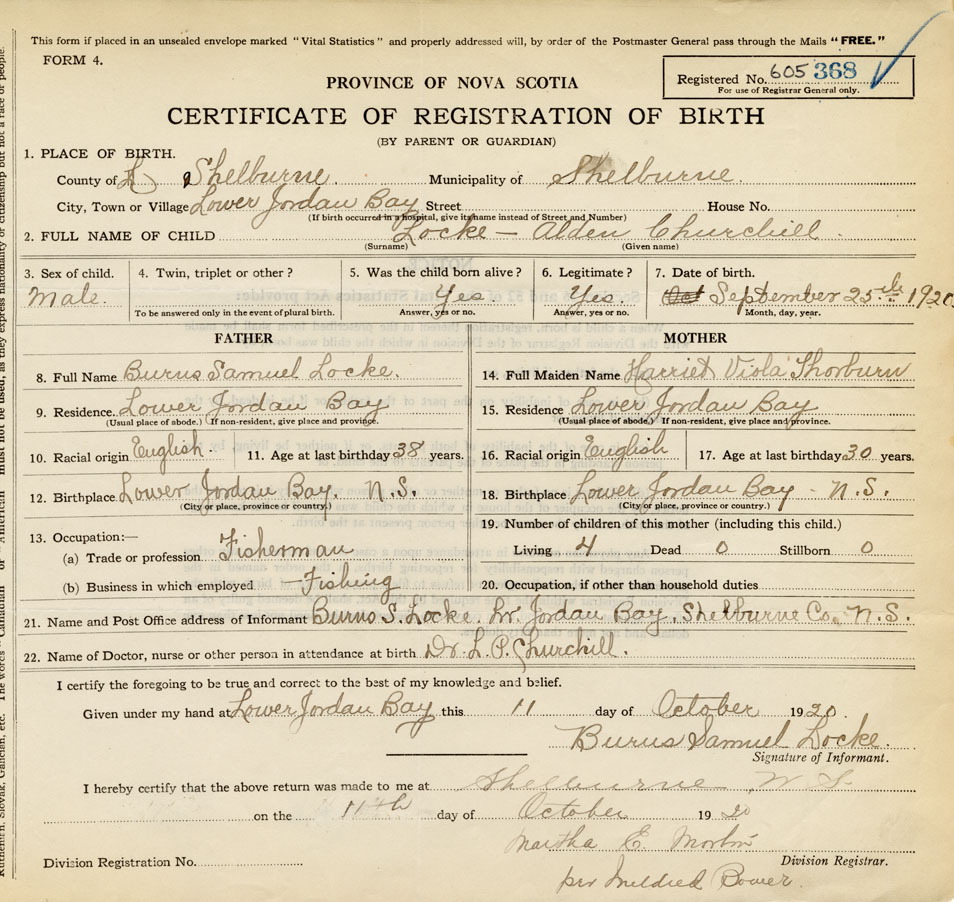 This form if placed in an unsealed envelope marked "Vital Statistics" and properly addressed will, by order of the Postmaster General pass through the Mails "FREE."
FORM 4.
Registered No. 605 368
For use of Registrar General only.
PROVINCE OF NOVA SCOTIA
CERTIFICATE OF REGISTRATION OF BIRTH
(BY PARENT OR GUARDIAN)
1. PLACE OF BIRTH.
County of Shelburne. Municipality of Shelburne.
City, Town or Village Lower Jordan Bay Street House No.
(If birth occurred in a hospital, give its name instead of Street and Number)
2. FULL NAME OF CHILD Locke — Alden Churchill
(Surname) (Given name)
3. Sex of child. 4. Twin, triplet or other? 5. Was the child born alive? 6. Legitimate? 7. Date of birth.
Male. Yes. Yes. Oct September 25th 1920
To be answered only in the event of plural birth. Answer, yes or no. Answer, yes or no. Month, day, year.
FATHER
8. Full Name Burns Samuel Locke.
9. Residence. Lower Jordan Bay
(Usual place of abode.) (If non-resident, give place and province.
10. Racial origin English. 11. Age at last birthday 38 years.
12. Birthplace Lower Jordan Bay. N.S.
(City or place, province or country.)
13. Occupation:—
(a) Trade or profession Fisherman
(b) Business in which employed — Fishing
MOTHER
14. Full Maiden Name Harriet Viola Thorburn
15. Residence Lower Jordan Bay
(Usual place of abode.) If non-resident, give place and province.
16. Racial origin English 17. Age at last birthday 30 years.
18. Birthplace Lower Jordan Bay - N.S.
(City or place, province or country.)
19. Number of children of this mother (including this child.)
Living 4 Dead 0 Stillborn 0
20. Occupation, if other than household duties
21. Name and Post Office address of Informant Burns S. Locke. Lr. Jordan Bay, Shelburne Co. N.S.
22. Name of Doctor, nurse or other person in attendance at birth Dr. L. P. Churchill.
I certify the foregoing to be true and correct to the best of my knowledge and belief.
Given under my hand at Lower Jordan Bay this 11 day of October 1920.
Burns Samuel Locke.
Signature of Informant.
I hereby certify that the above return was made to me at Shelburne N. S.
on the 11th day of October 19 20
Martha E.
Division Registration No. Division Registrar.
per Mildred Bower.